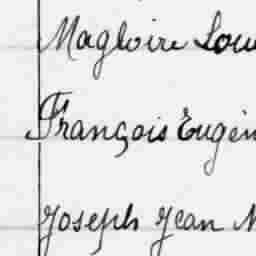 Magloire Lou
François Eugèn
Joseph Jean